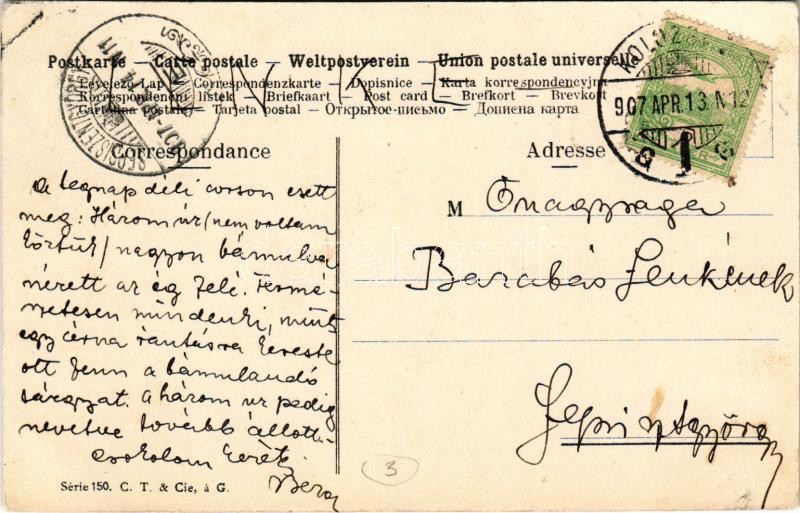 Postkarte — Carte postale — Weltpostverein — Union postale universelle
Levelező-Lap — Correspondenzkarte — Dopisnice — Karta korrespondencyjna
Korrespondenční listek — Briefkaart — Post card — Brefkort — Brevkort
Cartolina postale — Tarjeta postal — Открытое-письмо — Дописна карта
Correspondance
Adresse
907 APR. 13. N 12
G 1
A tegnap déli corson esett
meg: Három úr /nem voltam
köztük/ nagyon bámulva
nézett az ég felé. Termé-
szetesen mindenki, mint
egy cérna rántásra kereste
ott fenn a bámulandó
tárgyat. A három úr pedig
nevetve tovább állott.
csokolom kezét
M Őnagysága
Barabás Lenkének
Sepsi sztgyörgy
3
Série 150. C. T. & Cie, à G.